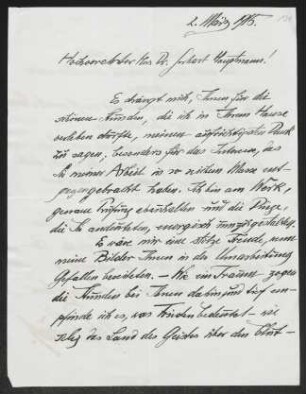 2. März 1915.
Hochverehrter Herr Dr. Gerhart Hauptmann!
Es drängt mich, Ihnen für die
schönen Stunden, die ich in Ihrem Hause
verleben durfte, meinen aufrichtigsten Dank
zu sagen, besonders für das Interesse, das
Sie meiner Arbeit in so reichem Masse ent-
gegengebracht haben. Ich bin am Werk,
genaue Prüfung abzuhalten und die Dinge,
die Sie andeuteten, energisch umzugestalten.
Es wäre mir eine stolze Freude, wenn
meine Bilder Ihnen in der Umarbeitung
Gefallen bereiteten. — Wie ein Traum zogen
die Stunden bei Ihnen dahin und tief em-
pfinde ich es, was Frieden bedeutet — wie
selig das Land des Geistes über den blut-